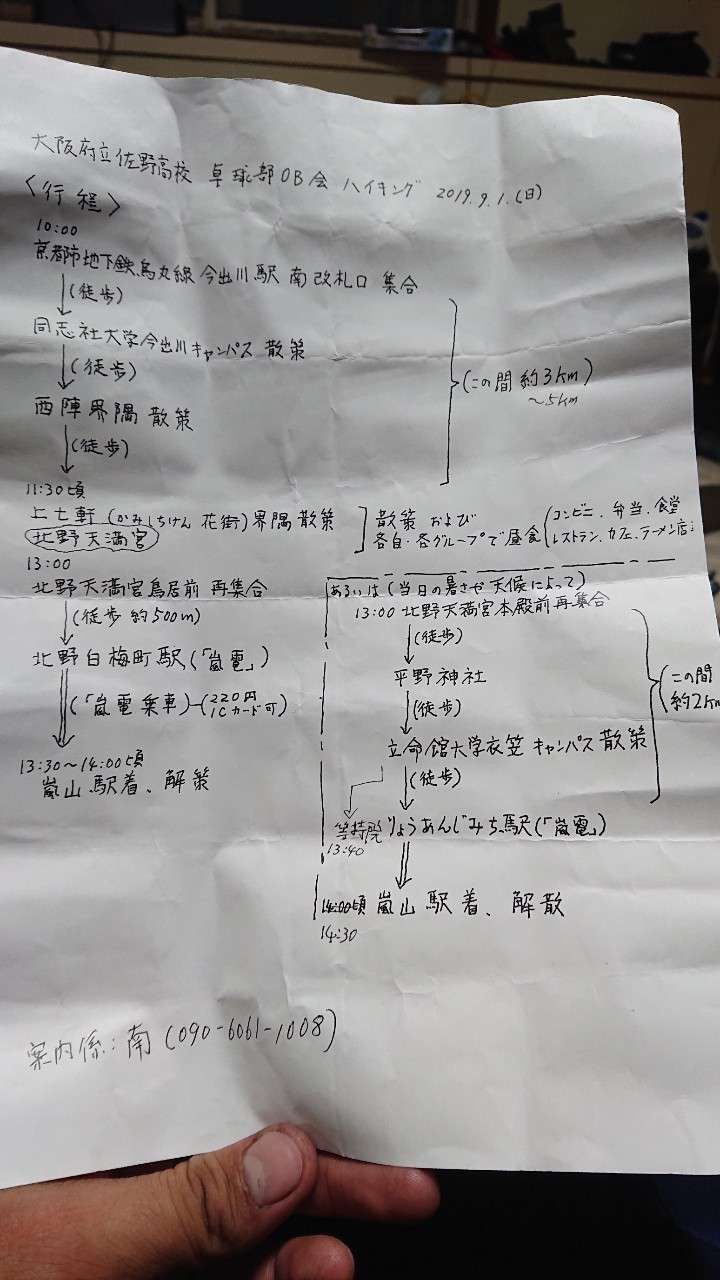 大阪府立佐野高校 卓球部OB会 ハイキング 2019.9.1.(日)
〈行程〉
10:00
京都市地下鉄烏丸線 今出川駅 南改札口 集合
↓(徒歩)
同志社大学今出川キャンパス 散策
↓(徒歩)
(この間 約3km)
~5km
西陣界隈 散策
↓(徒歩)
11:30頃
上七軒 (かみしちけん 花街) 界隈散策
北野天満宮
散策 および
各自・各グループで昼食
コンビニ、弁当、食堂
レストラン、カフェ、ラーメン店
13:00
北野天満宮鳥居前 再集合
↓(徒歩 約500m)
北野白梅町駅(「嵐電」)
↓(「嵐電乗車」)-(220円
ICカード可)
13:30~14:00頃
嵐山駅着、解策
あるいは(当日の暑さや天候によって)
13:00 北野天満宮本殿前再集合
↓(徒歩)
平野神社
↓(徒歩)
(この間
約2km
立命館大学衣笠キャンパス 散策
↓(徒歩)
等持院
13:40
りょうあんじみち駅(「嵐電」)
14:00頃 嵐山駅着、解散
14:30
案内係:南 (090-6061-1008)